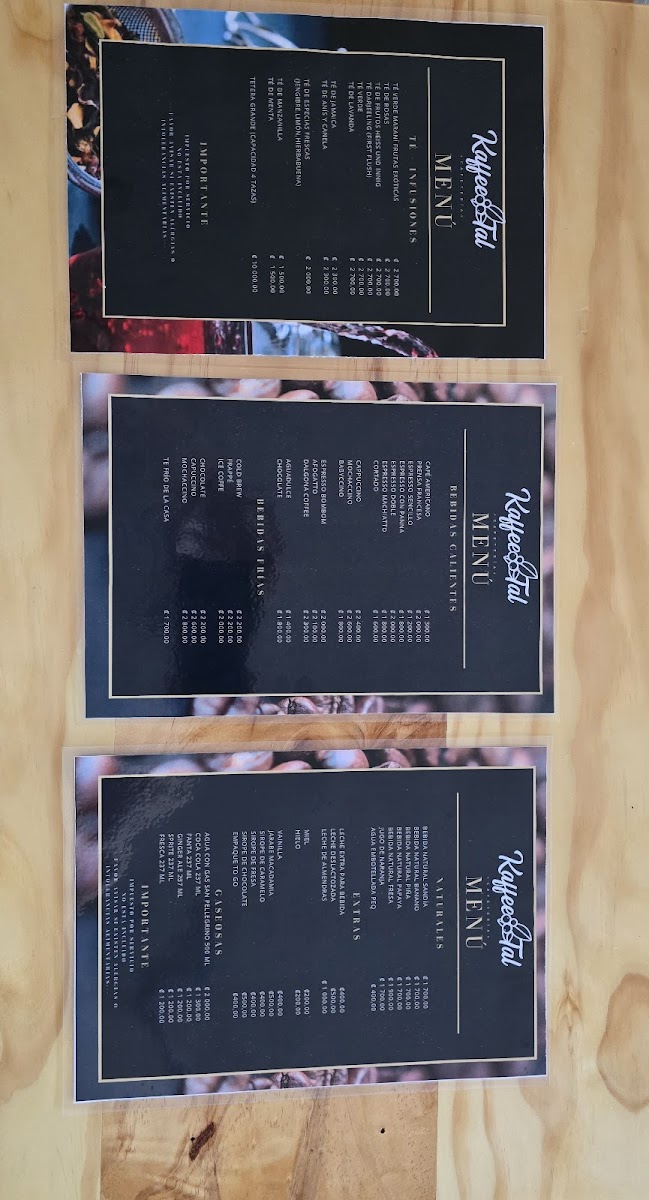 Kaffee & Tal
CAFETERÍA
MENÚ
TÉ - INFUSIONES
TÉ VERDE MARANÍ FRUTAS EXÓTICAS ₡ 2 700.00
TÉ DE ROSAS ₡ 2 700.00
TÉ DE FRUTOS HEISS UND INNIG ₡ 2 700.00
TÉ DARJEELING (FIRST FLUSH) ₡ 2 700.00
TÉ VERDE ₡ 2 700.00
TÉ DE LAVANDA ₡ 2 700.00
TÉ DE JAMAICA ₡ 2 300.00
TÉ DE ANIS Y CANELA ₡ 2 300.00
TÉ DE ESPECIAS FRESCAS ₡ 2 000.00
(JENGIBRE, LIMÓN, HIERBABUENA)
TÉ DE MANZANILLA ₡ 1 500.00
TÉ DE MENTA ₡ 1 500.00
TETERA GRANDE (CAPACIDAD 4 TAZAS) ₡ 10 000.00
IMPORTANTE
IMPUESTO POR SERVICIO
NO ESTÁ INCLUIDO
FAVOR AVISAR SI EXISTEN ALERGIAS O
INTOLERANCIAS ALIMENTARIAS...
Kaffee & Tal
CAFETERÍA
MENÚ
BEBIDAS CALIENTES
CAFÉ AMERICANO ₡ 1 500.00
PRENSA FRANCESA ₡ 2 000.00
ESPRESSO SENCILLO ₡ 1 200.00
ESPRESSO COIN PANNA ₡ 1 800.00
ESPRESSO DOBLE ₡ 2 000.00
ESPRESSO MACHIATTO ₡ 1 800.00
CORTADO ₡ 1 600.00
CAPPUCCINO ₡ 2 400.00
MOCHACCINO ₡ 2 600.00
BABYCCINO ₡ 1 800.00
ESPRESSO BOMBOM ₡ 2 000.00
AFOGATTO ₡ 2 100.00
DALGONA COFFEE ₡ 2 300.00
AGUADULCE ₡ 1 400.00
CHOCOLATE ₡ 1 800.00
BEBIDAS FRÍAS
COLD BREW ₡ 2 200.00
FRAPPÉ ₡ 2 200.00
ICE COFFE ₡ 2 000.00
CHOCOLATE ₡ 2 200.00
CAPUCCINO ₡ 2 600.00
MOCHACCINO ₡ 2 800.00
TE FRÍO DE LA CASA ₡ 1 700.00
Kaffee & Tal
CAFETERÍA
MENÚ
NATURALES
BEBIDA NATURAL SANDÍA ₡ 1 700.00
BEBIDA NATURAL BANANO ₡ 1 700.00
BEBIDA NATURAL PIÑA ₡ 1 700.00
BEBIDA NATURAL PAPAYA ₡ 1 700.00
BEBIDA NATURAL FRESA ₡ 1 900.00
JUGO DE NARANJA ₡ 1 700.00
AGUA EMBOTELLADA PEQ ₡ 400.00
EXTRAS
LECHE EXTRA PARA BEBIDA ₡400.00
LECHE DESLACTOZADA ₡500.00
LECHE DE ALMENDRAS ₡ 1 000.00
MIEL ₡200.00
HIELO ₡200.00
VAINILLA ₡400.00
JARABE MACADAMIA ₡500.00
SIROPE DE CARAMELO ₡400.00
SIROPE DE FRESA ₡400.00
SIROPE DE CHOCOLATE ₡500.00
EMPAQUE TO GO ₡400.00
GASEOSAS
AGUA CON GAS SAN PELLEGRINO 500 ML ₡ 2 000.00
COCA COLA 237 ML ₡ 1 300.00
FANTA 237 ML ₡ 1 200.00
GINGER ALE 237 ML ₡ 1 200.00
SPRITE 237 ML ₡ 1 200.00
FRESCA 237 ML ₡ 1 200.00
IMPORTANTE
IMPUESTO POR SERVICIO
NO ESTÁ INCLUIDO
FAVOR AVISAR SI EXISTEN ALERGIAS O
INTOLERANCIAS ALIMENTARIAS...